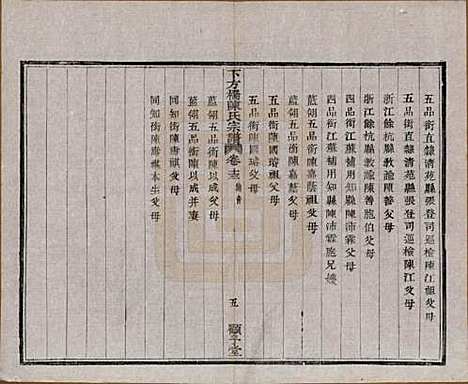 五品銜直隸清苑縣張登司巡檢陳江祖父母
五品銜直隸清苑縣張登司巡檢陳江父母
浙江餘杭縣教諭陳善父母
浙江餘杭縣教諭陳善胞伯父母
四品銜江蘇補用知縣陳沛霖父母
四品銜江蘇補用知縣陳沛霖胞兄嫂
藍翎五品銜陳嘉蔭祖父母
藍翎五品銜陳嘉蔭父母
五品銜陳國瑢祖父母
五品銜陳國瑢父母
下方橋陳氏宗譜 卷
五
藍翎五品銜陳以成父母
藍翎五品銜陳以成并妻
同知銜陳唐祺父母
同知銜陳唐祺本生父母